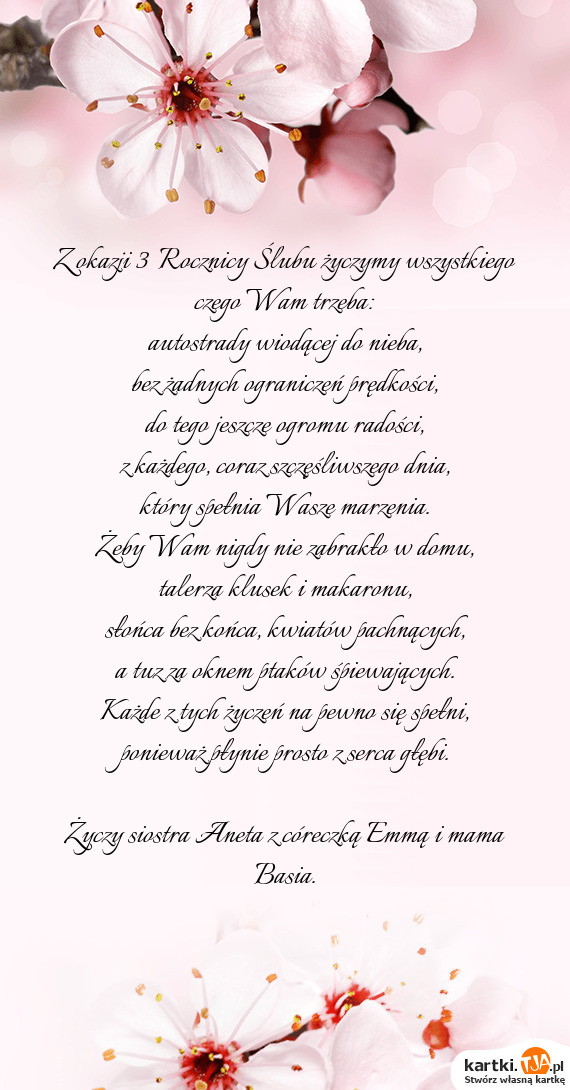 Z okazji 3 Rocznicy Ślubu życzymy wszystkiego
czego Wam trzeba:
autostrady wiodącej do nieba,
bez żadnych ograniczeń prędkości,
do tego jeszcze ogromu radości,
z każdego, coraz szczęśliwszego dnia,
który spełnia Wasze marzenia.
Żeby Wam nigdy nie zabrakło w domu,
talerza klusek i makaronu,
słońca bez końca, kwiatów pachnących,
a tuz za oknem ptaków śpiewających.
Każde z tych życzeń na pewno się spełni,
ponieważ płynie prosto z serca głębi.
Życzy siostra Aneta z córeczką Emmą i mama
Basia.
kartki.TJA.pl
Stwórz własną kartkę